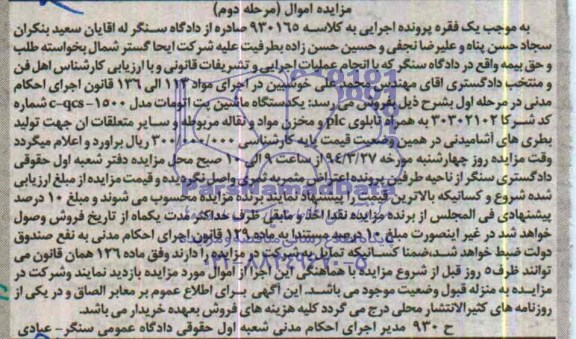 مزایده اموال (مرحله دوم)
به موجب یک فقره پرونده اجرایی به کلاسه ۹۳۰۱۶۵ صادره از دادگاه سنگر له اقایان سعید بنکران
سجاد حسن پناه و علیرضا نجفی و حسین حسن زاده بطرفیت علیه شرکت ایحا گستر شمال بخواسته طلب
و حق بیمه واقع در دادگاه سنگر که با انجام عملیات اجرایی و تشریفات قانونی و با ارزیابی کارشناس اهل فن
و منتخب دادگستری اقای مهندس علی خوشبین در اجرای مواد ۱۱۳ الی ۱۳۶ قانون اجرای احکام
مدنی در مرحله اول بشرح ذیل بفروش می رسد: یکدستگاه ماشین پت اتومات مدل c-qcs-۱۵۰۰ شماره
کد شمرکا ۳۰۳۰۲۱۰۲ به همراه تابلوی plc و مخزن مواد و نقاله مربوطه و سایر متعلقات ان جهت تولید
بطری های آشامیدنی در همین وضعیت قیمت پایه کارشناسی ریال براورد و اعلام میگردد
وقت مزایده روز چهارشنبه مورخه ۹٤/۳/۲۷ از ساعت ۹ الی ۱۰ صبح محل مزایده دفتر شعبه اول حقوقی
دادگستری سنگر از ناحیه طرفین پرونده اعتراض مثمر به ثمری واصل نگردیده و قیمت مزایده از مبلغ ارزیابی
شده شروع و کسانیکه بالاترین قیمت را پیشنهاد نمایند برنده مزایده محسوب می شوند و مبلغ ۱۰ درصد
پیشنهادی فی المجلس از برنده مزایده نقدا اخذ و مابقی ظرف حداکثر مدت یکماه از تاریخ فروش وصول
خواهد شد در غیر اینصورت مبلغ ۱۰ درصد مستندا به ماده ۱۲۹ قانون اجرای احکام مدنی به نفع صندوق
دولت ضبط خواهد شد،ضمنا کسانیکه تمایل به شرکت در مزایده را دارند وفق ماده ۱۲٦ همان قانون می
توانند ظرف ۵ روز قبل از شروع مزایده با هماهنگی این اجرا از اموال مورد مزایده بازدید نمایند وشرکت در
مزایده به منزله قبول وضعیت موجود می باشد. این آگهی برای اطلاع عموم بر معابر الصاق و در یکی از
روزنامه های کثیرالانتشار محلی درج می گردد کلیه هزینه های فروش بعهده خریدار می باشد.
ح ۹۳۰ مدیر اجرای احکام مدنی شعبه اول حقوقی دادگاه عمومی سنگر- عبادی